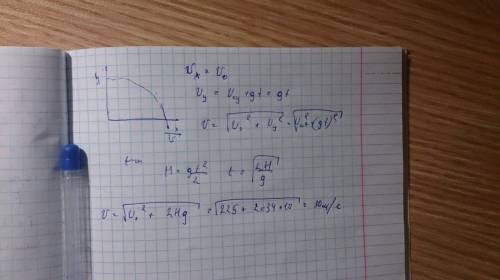 y
v⃗
x
v_x = v_0
v_y = v_0y + gt = gt
v = √(v_x² + v_y²) = √(v_0² + (gt)²)
H = gt²/2 t = √(2H/g)
v = √(v_0² + 2Hg) = √(225 + 2×34×10) = 30 м/с